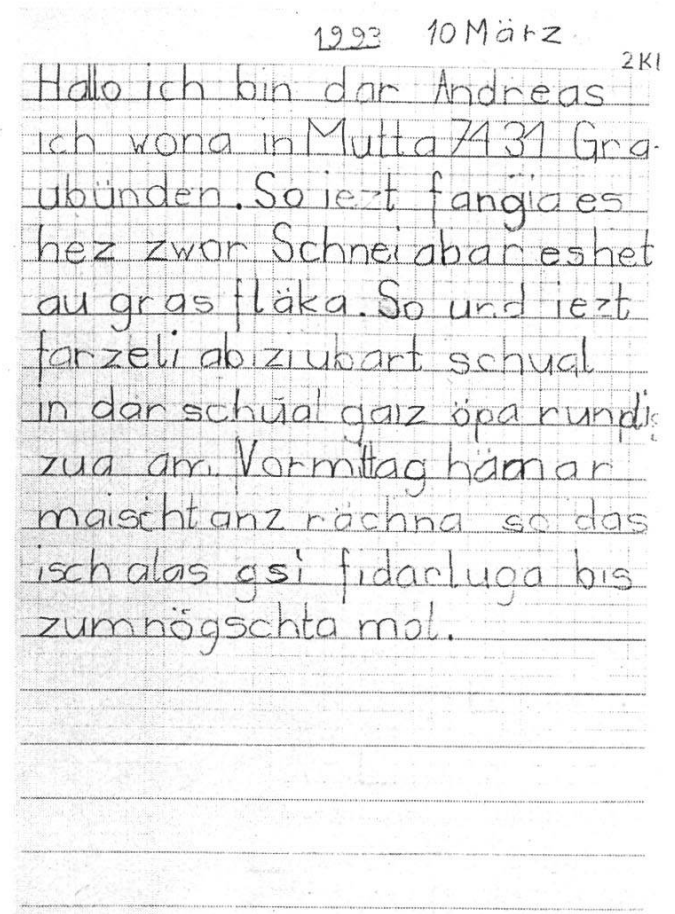 1993 10 März
2Kl
Hallo ich bin dar Andreas
ich wona in Mutta 7431 Gra-
ubünden. So iezt fangia es
hez zwor Schnei abar es het
au gras fläka. So und iezt
farzeli abizi ubart schual
in dar schual gaiz öpa rundi
zua am Vormittag hämar
maischtanz rächna so das
isch alas gsi fidarluga bis
zum nögschta mol.